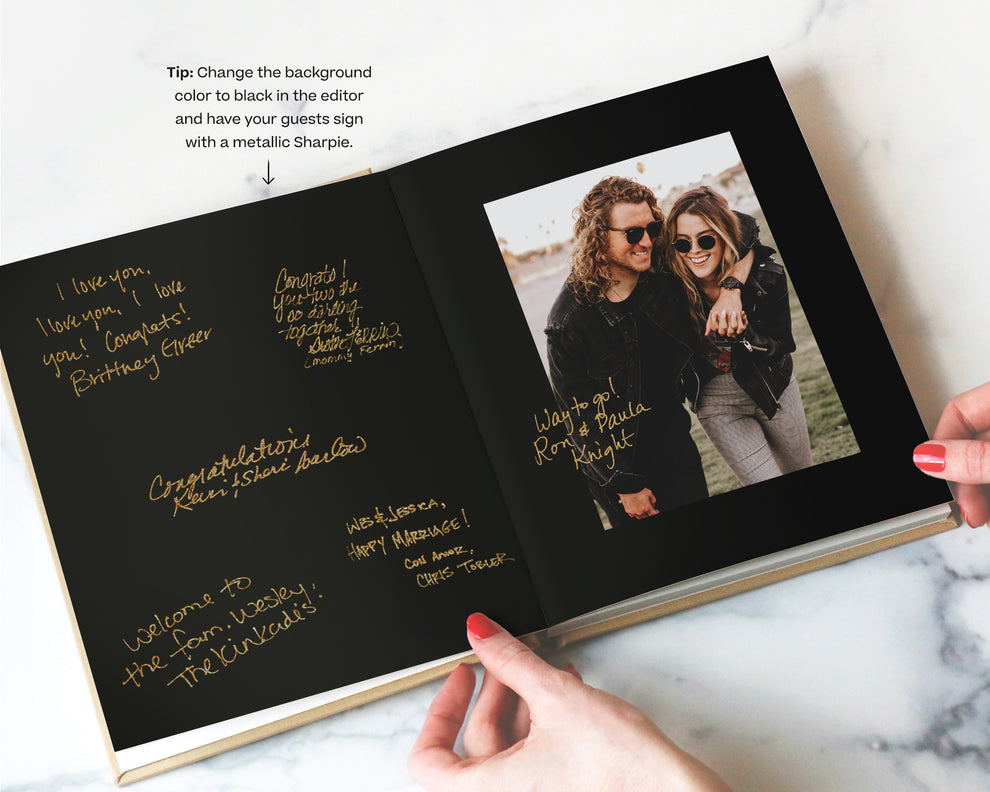 Tip: Change the background
color to black in the editor
and have your guests sign
with a metallic Sharpie.
I love you,
I love you, I love
you! Congrats!
Brittney Greer
Congrats!
You two are
so darling
together!
Ferrin
(mommy Ferrin)
Congratulations
Kevin & Shari Barlow
Wes & Jessica,
Happy Marriage!
Con Amor,
Chris Tobler
Welcome to
the fam, Wesley!
The Kinkade's
Way to go!
Ron & Paula
Knight